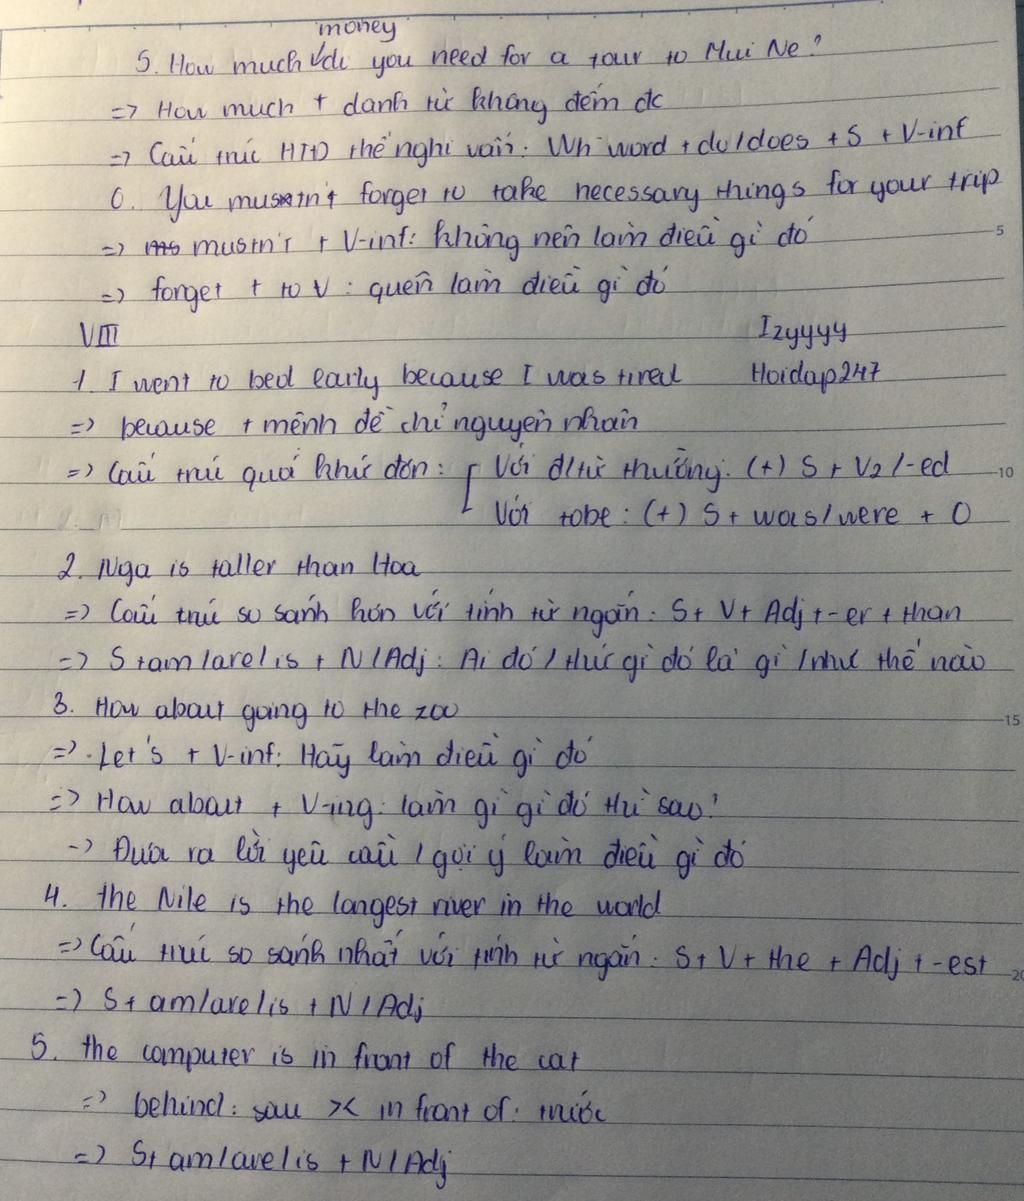 money
5. How much do you need for a tour to Mui Ne?
=> How much + danh từ không đếm đc
=> Cấu trúc HTĐ thể nghi vấn: Wh word + do/does + S + V-inf
6. You mustn't forget to take necessary things for your trip
=> mustn't + V-inf: không nên làm điều gì đó
=> forget + to V: quên làm điều gì đó
VIII Izyyyy
1. I went to bed early because I was tired Hoidap247
=> because + mệnh đề chỉ nguyên nhân
=> Cấu trúc quá khứ đơn: Với đtừ thường: (+) S + V2/-ed
Với tobe: (+) S + was/were + O
2. Nga is taller than Hoa
=> Cấu trúc so sánh hơn với tính từ ngắn: S + V + Adj + -er + than
=> S + am/are/is + N/Adj: Ai đó/thứ gì đó là gì/như thế nào
3. How about going to the zoo
=> Let's + V-inf: Hãy làm điều gì đó
=> How about + V-ing: làm gì gì đó thì sao?
-> Đưa ra lời yêu cầu/gợi ý làm điều gì đó
4. the Nile is the longest river in the world
=> Cấu trúc so sánh nhất với tính từ ngắn: S + V + the + Adj + -est
=> S + am/are/is + N/Adj
5. the computer is in front of the cat
=> behind: sau >< in front of: trước
=> S + am/are/is + N/Adj